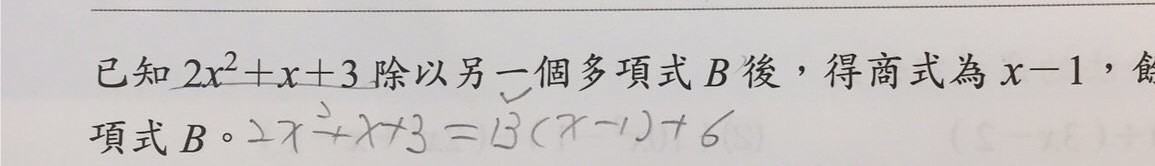 已知 2x²+x+3 除以另一個多項式 B 後，得商式為 x−1，餘
項式 B。2x²+x+3=B(x-1)+6